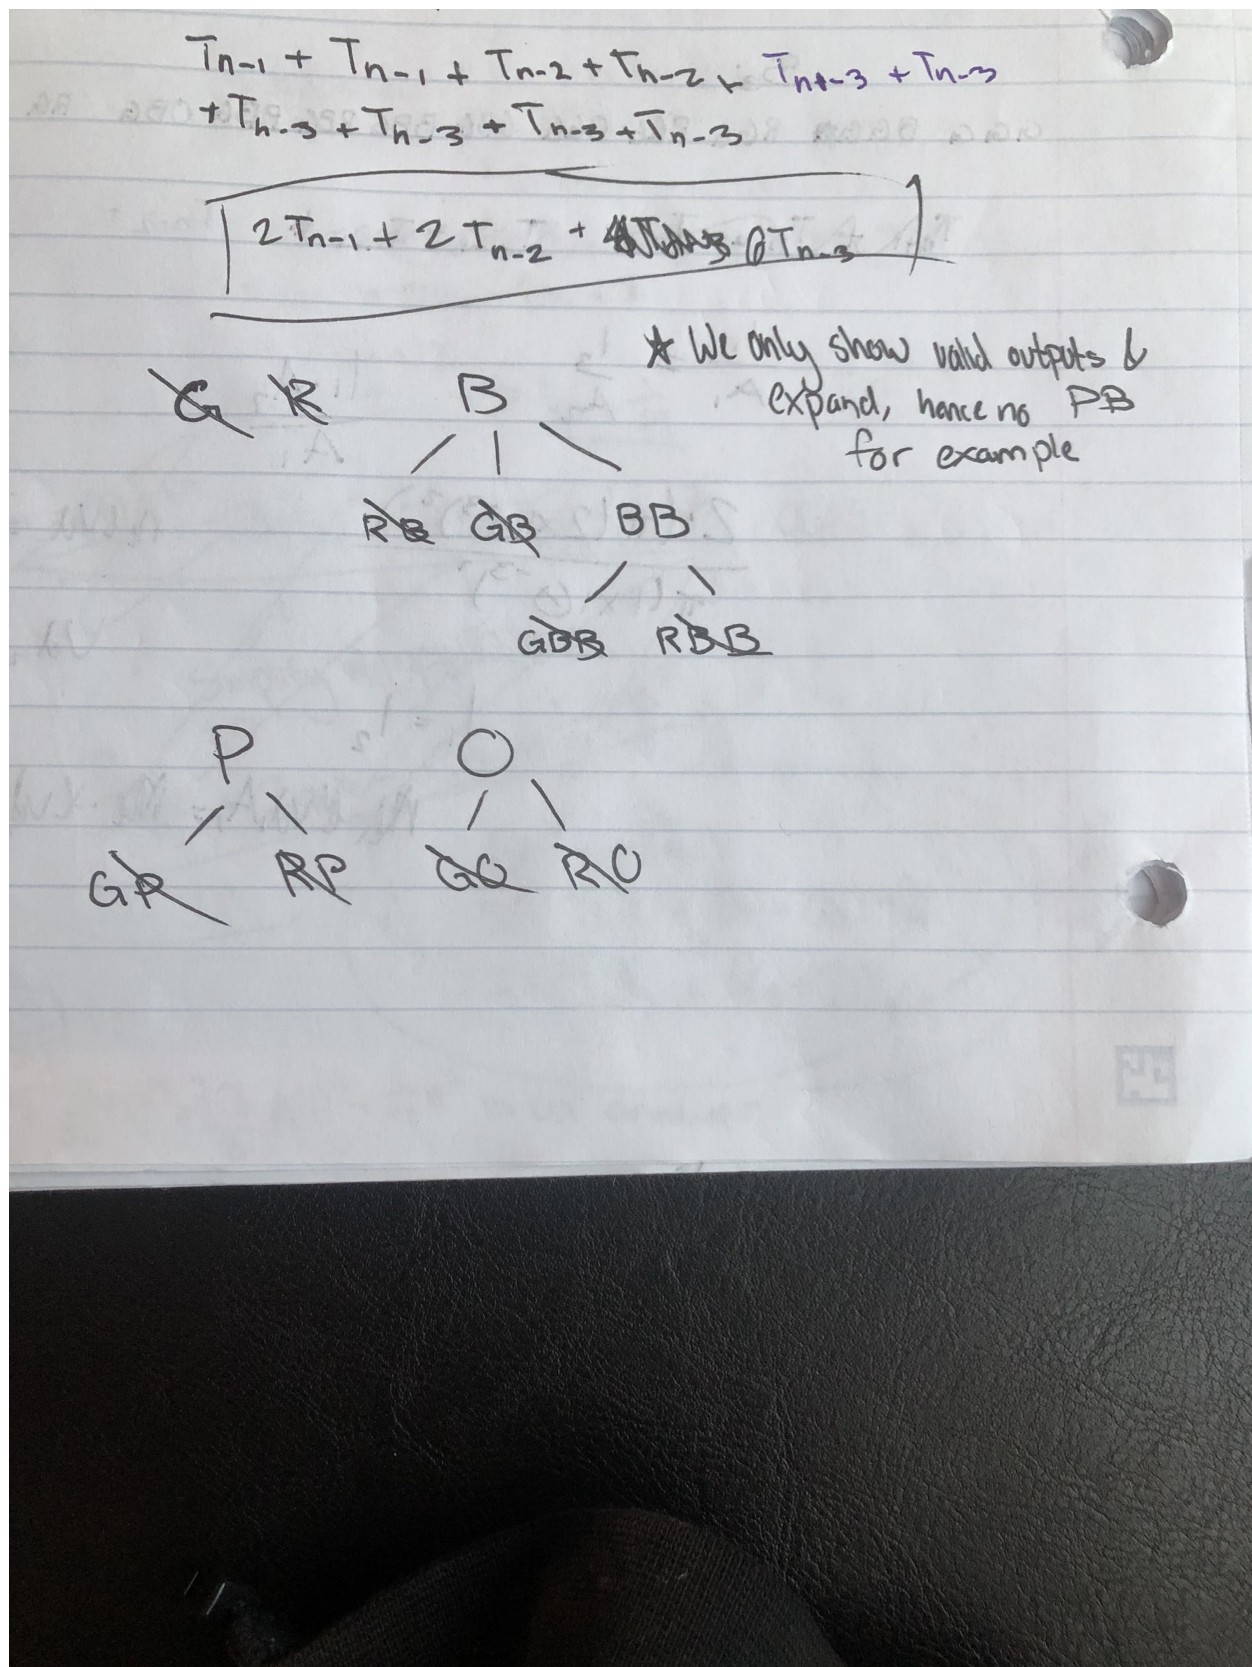 Tn-1 + Tn-1 + Tn-2 + Tn-2 + Tn-3 + Tn-3
+ Tn-3 + Tn-3 + Tn-3 + Tn-3
2Tn-1 + 2Tn-2 + 6Tn-3
☆ We only show valid outputs &
expand, hence no PB
for example
G R B
RB GB BB
GBB RBB
P O
GP RP GO RO